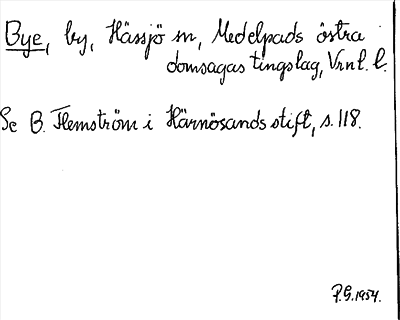 Bye, by, Hässjö sn, Medelpads östra
domsagas tingslag, Vrnl. l.
Se B. Flemström i Härnösands stift, s. 118.
P.G. 1954.